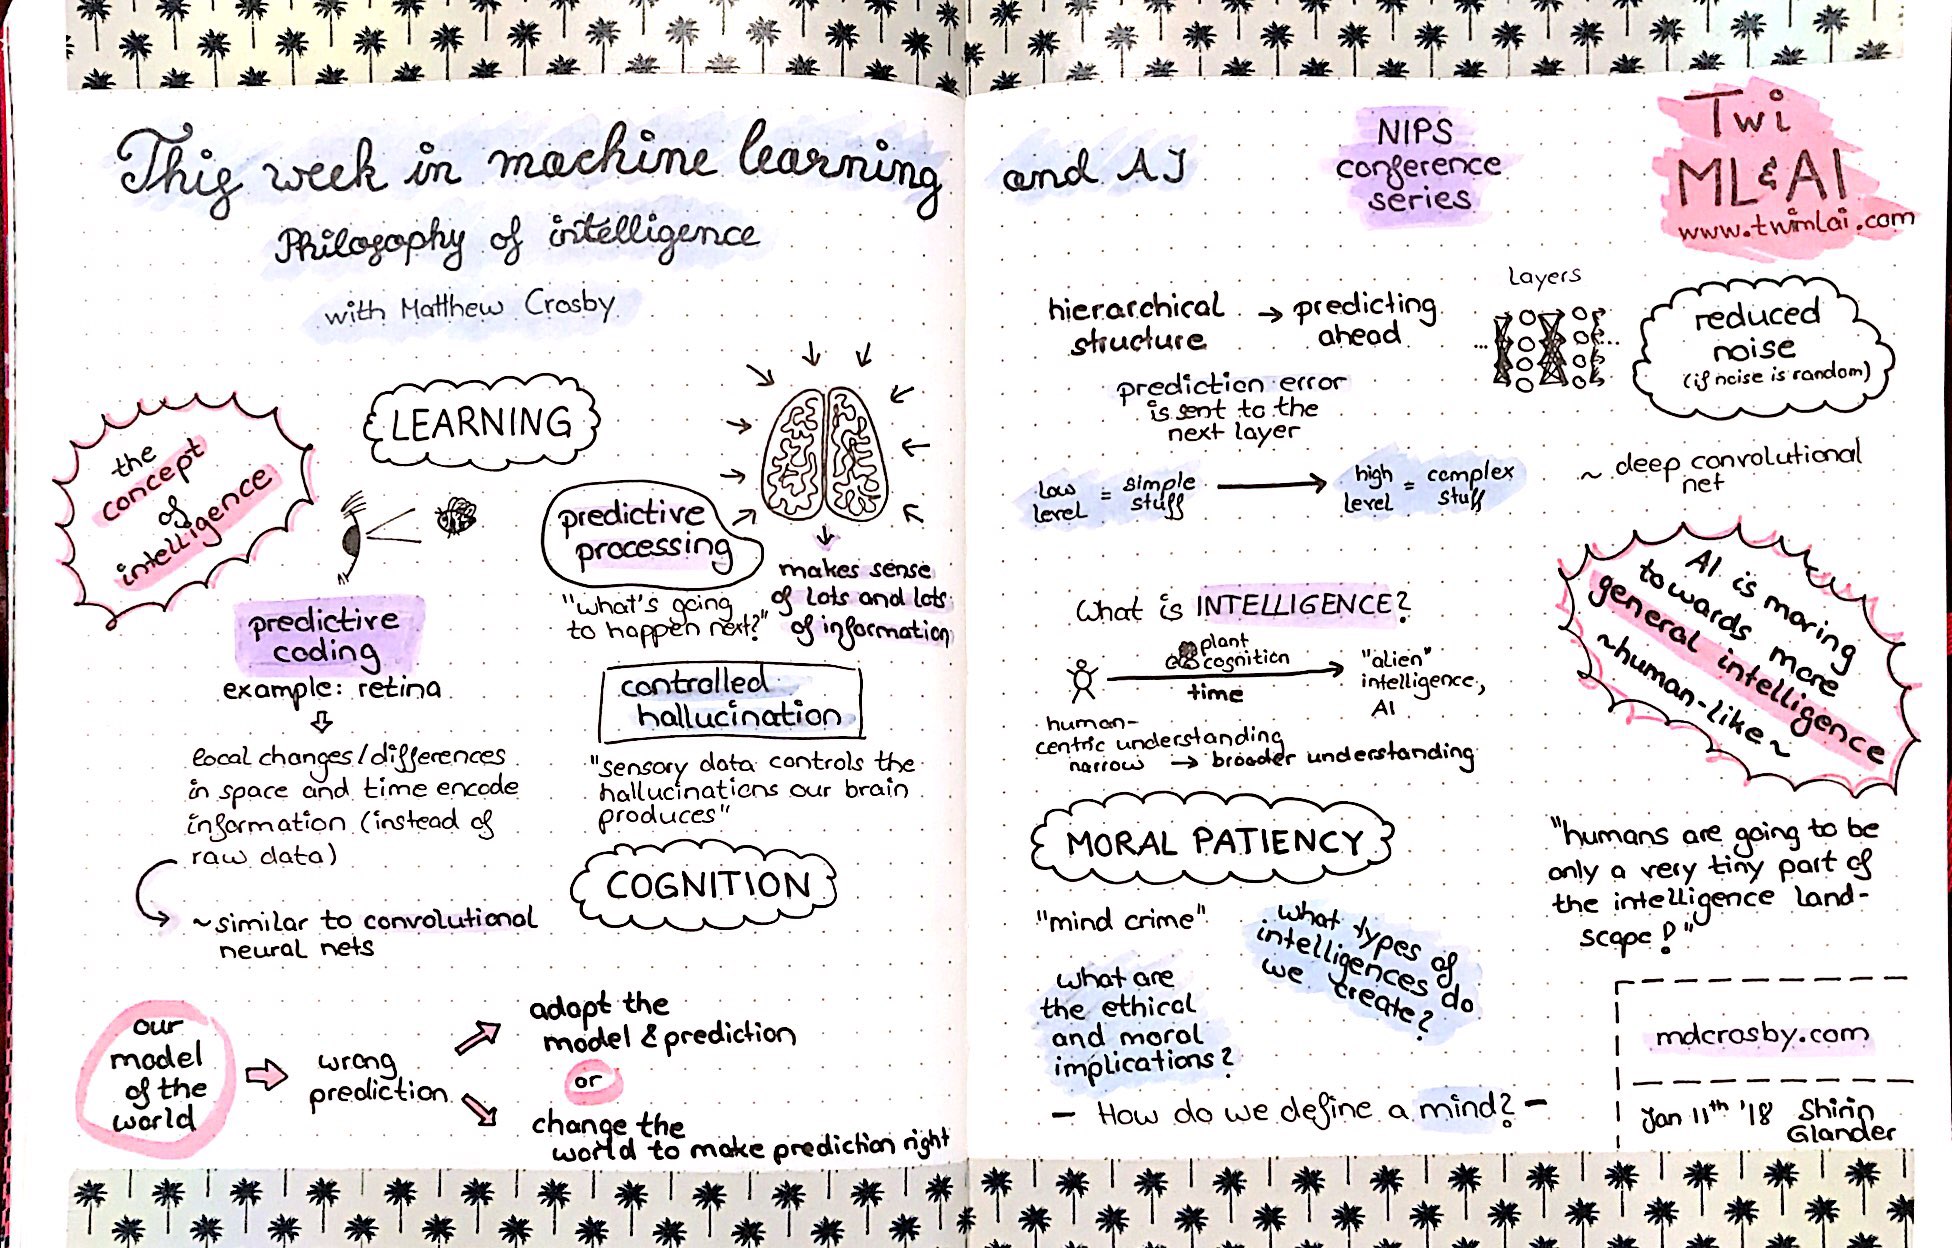 This week in machine learning and AI
Philosophy of intelligence
with Matthew Crosby
NIPS
conference
series
Twi
ML&AI
www.twimlai.com
the
concept
of
intelligence
LEARNING
predictive
coding
example: retina
local changes/differences
in space and time encode
information (instead of
raw data)
~similar to convolutional
neural nets
predictive
processing
"what's going
to happen next?"
makes sense
of lots and lots
of information
controlled
hallucination
"sensory data controls the
hallucinations our brain
produces"
COGNITION
our
model
of the
world
wrong
prediction
adapt the
model & prediction
or
change the
world to make prediction right
hierarchical
structure
→ predicting
ahead
prediction error
is sent to the
next layer
Layers
reduced
noise
(if noise is random)
low
level = simple
stuff
high
level = complex
stuff
~ deep convolutional
net
What is INTELLIGENCE?
plant
cognition
time
"alien"
intelligence,
AI
human-
centric understanding
narrow → broader understanding
AI is moving
towards more
general intelligence
~human-like~
MORAL PATIENCY
"mind crime"
what types of
intelligences do
we create?
what are
the ethical
and moral
implications?
- How do we define a mind? -
"humans are going to be
only a very tiny part of
the intelligence land-
scape!"
mdcrosby.com
Jan 11th '18 Shirin
Glander